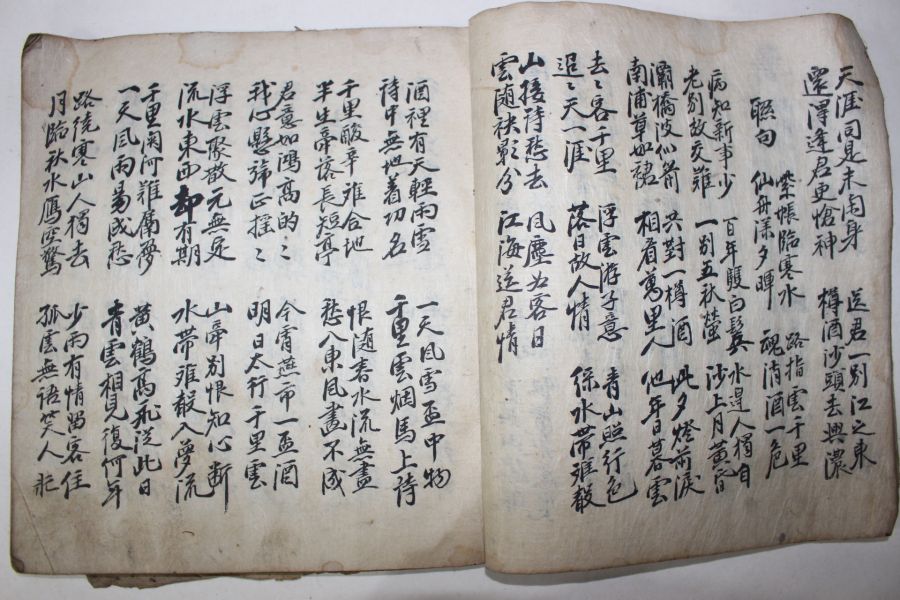 天涯同是未歸身 送君一別江之東
還得逢君更愴神 樽酒沙頭去興濃
聯句
帳臨寒水 路指雲千里
仙舟漾夕暉 醜清酒一危
病知新事少 百年雙白鬂 水邊人獨自
老別故交難 一別五秋螢 沙上月黃昏
灞橋波似箭 共對一樽酒 此夕燈前淚
南浦草如裙 相看萬里人 他年日暮雲
去去客千里 浮雲游子意 青山照行色
迢迢天一涯 落日故人情 綠水帶離聲
山接詩愁去 風塵為客日
雲隨袂影分 江海送君情
酒裡有天輕雨雪 一天風雪盃中物
詩中無地着功名 千里雲烟馬上詩
千里酸辛難合地 恨隨春水流無盡
半生帝落長短亭 愁入東風畫不成
君意如鴻高的的 今宵燕市一盃酒
我心懸旆正搖搖 明日太行千里雲
浮雲聚散元無定 山帝別恨知心斷
流水東西却有期 水帶離聲入夢流
千里關何難屬夢 黃鶴高飛從此日
一天風雨易成愁 青雲相見復何年
路繞寒山人獨去 少雨有情留客住
月臨秋水鴈空驚 孤雲無語笑人忙